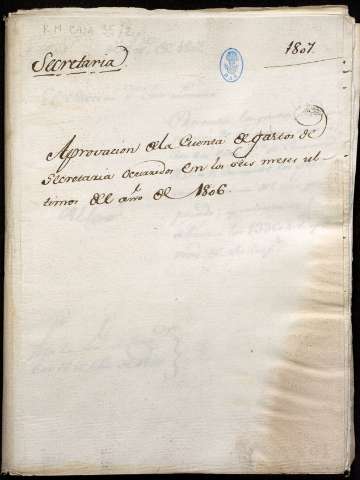 R.M. CAJA 35/2
1807
Secretaria
Aprovacion de la Cuenta de gastos de
Secretaria ocurridos en los seis meses ul-
timos del año de 1806.